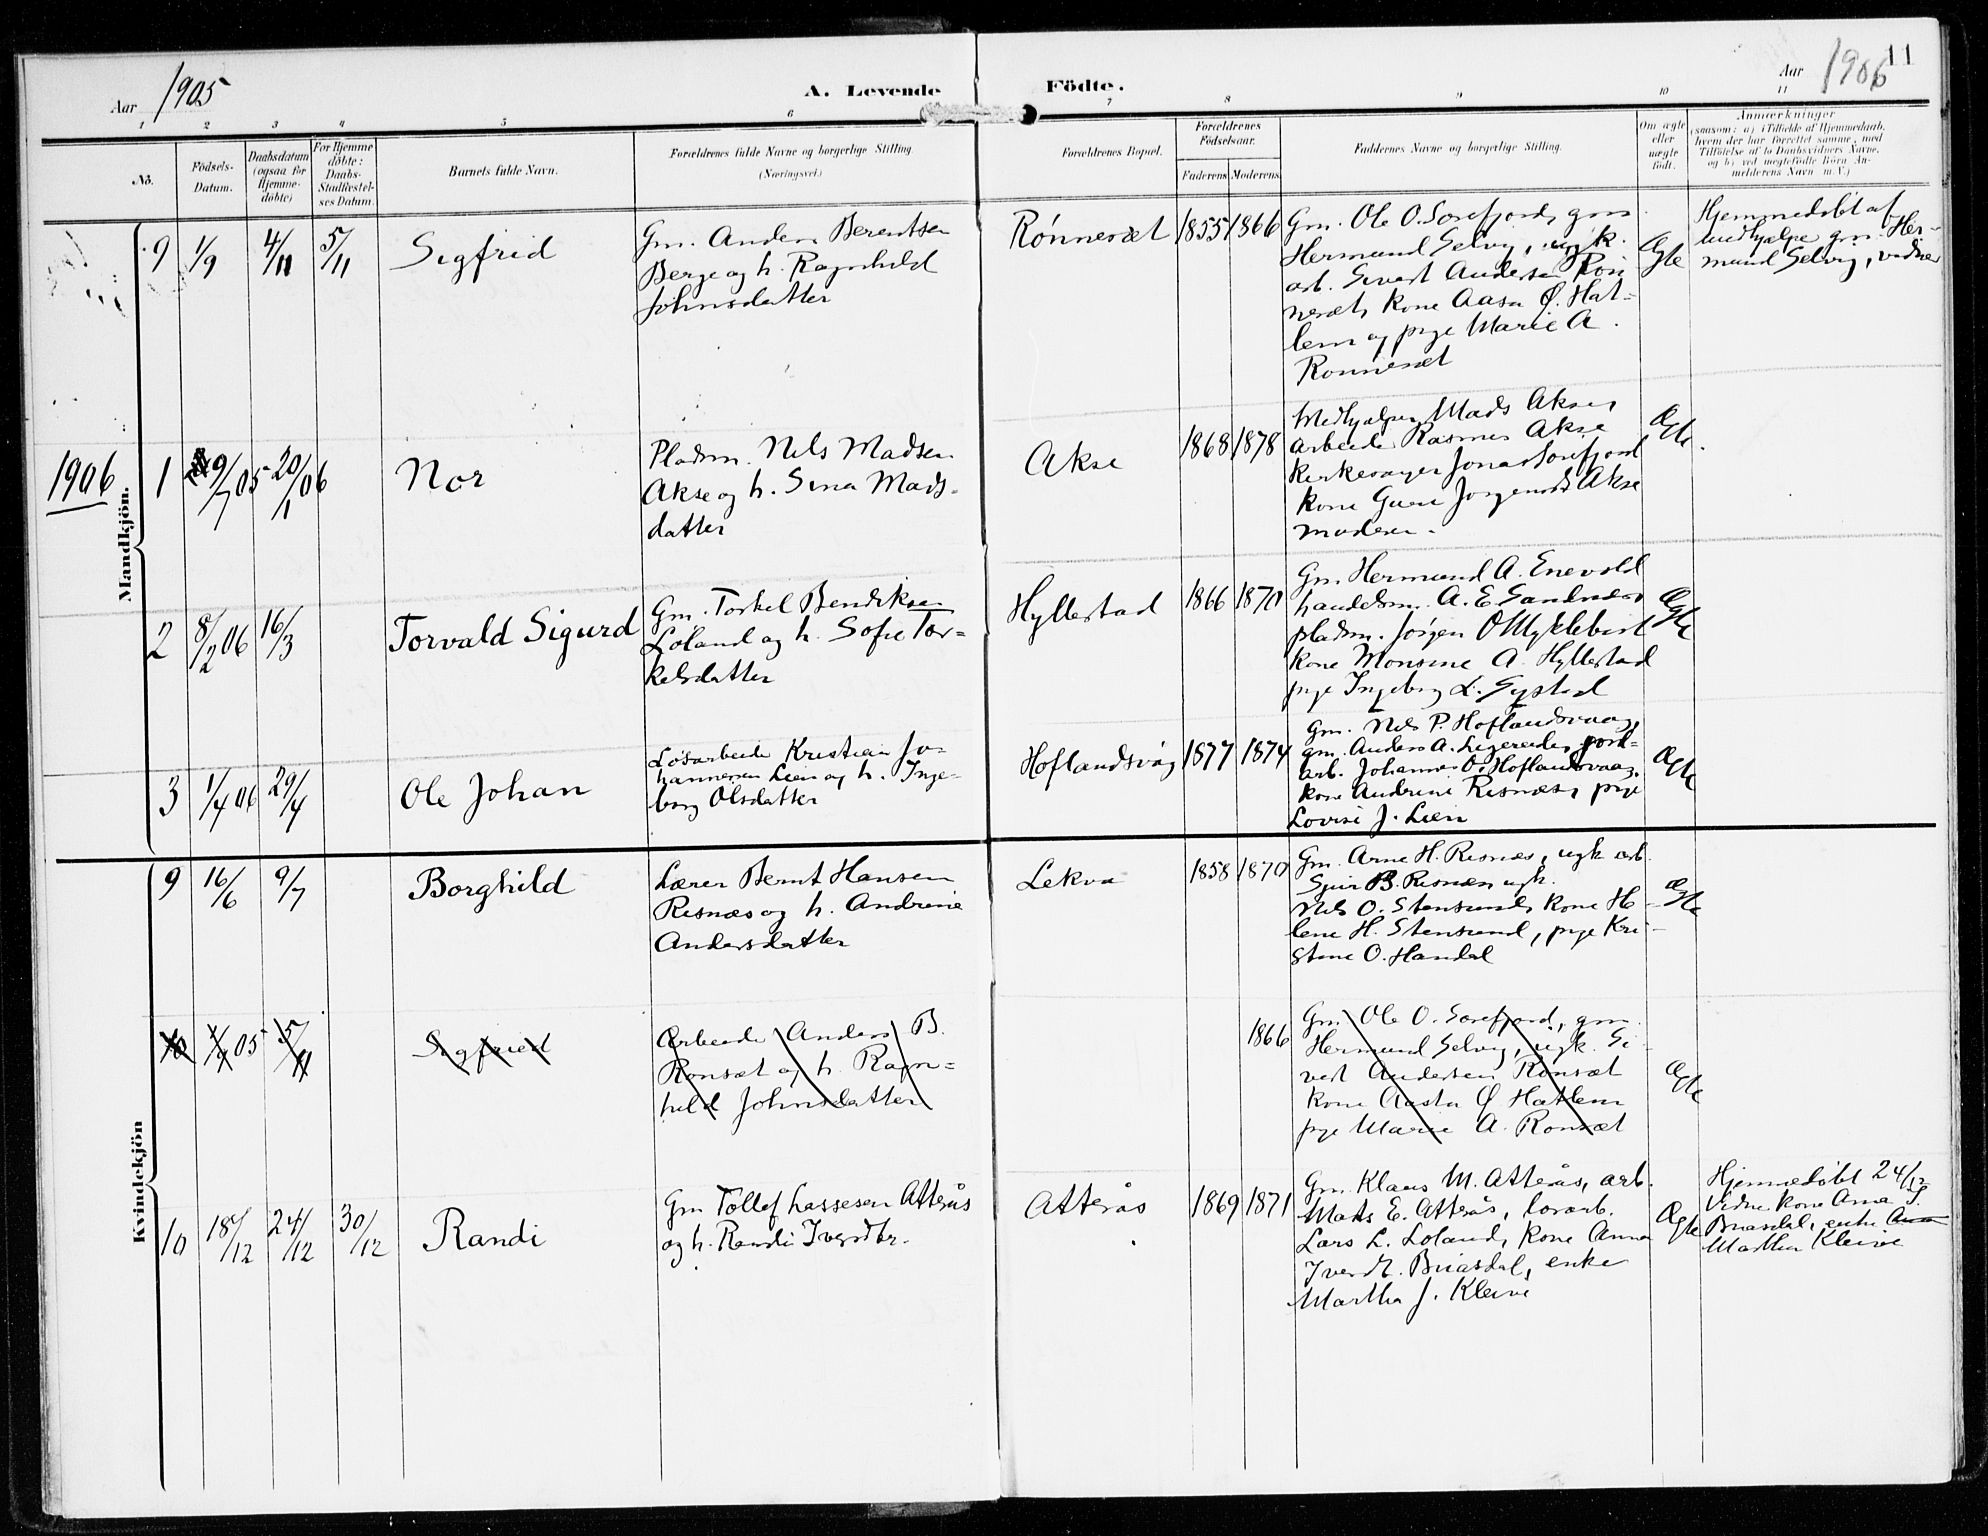 Aar 1905
A. Levende Födte.
Aar 1906
11
1 2 3 4 5 6 7 8 9 10 11
No.
Födsels-
Datum.
Daabsdatum
(ogsaa for
Hjemme-
döbte)
For Hjemme
döbte:
Daabs-
Stadfæstel-
ses Datum.
Barnets fulde Navn.
Forældrenes fulde Navne og borgerlige Stilling.
(Næringsvei.)
Forældrenes Bopæl.
Forældrenes
Födselsaar.
Faderens Moderens
Faddernes Navne og borgerlig Stilling.
Om ægte
eller
uægte
födt.
Anmærkninger
(saasom: a) i Tilfælde af Hjemmedaab,
hvem der har forrettet samme, med
Tilföielse af to Daabsvidners Navne,
og b) ved uægtefödte Börn An-
melderens Navn m. V.)
Mandkjön.
9 1/9 4/11 5/11 Sigfrid
Gm. Anders Berentsen
Berge og h. Ragnhild
Johnsdatter
Rønneset 1855 1866
Gm. Ole O. Sørefjord, gm
Hermund Selvig, ugk.
arb. Sivert Andersen Rön
neset, kone Aasta Ø. Hat-
lem og pige Marie A.
Ronneset
Ægte
Hjemmedöbt af
medhjælper gm. Her-
mund Selvig, vidner
1906
1 9/7 05 20/1 06 Nor
Pladsm. Nils Madsen
Akse og h. Sina Mads-
datter
Akse 1868 1878
Medhjælper Mads Akse,
arbeider Rasmus Akse
Kirkesanger Jonas Sørefjord
kone Guri Jorgensd Akse
moderen.
Ægte.
2 8/2 06 16/3 Torvald Sigurd
Gm. Torkel Bendiksen
Loland og h. Sofie Tor-
kelsdatter
Hyllestad 1866 1870
Gm. Hermund A. Enevold
handelsm. A. E. Sandnæs,
pladsm. Jörgen O Myklebust
kone Monsine A. Hyllestad
pige Ingeborg L. Systad
Ægte
3 1/4 06 29/4 Ole Johan
Løsarbeide Kristian Jo-
hannessen Lien og h. Inge-
borg Olsdatter
Hoflandsvåg 1877 1874
Gm. Nils P. Hoflandsvaag,
gm. Anders A. Ligereider, jord-
arb. Johannes O. Hoflandsvaag,
kone Andrine Risnæs, pige
Lovise J. Lien
Ægte
Kvindekjön
9 16/6 9/7 Borghild
Lærer Bernt Hansen
Risnæs og h. Andrine
Andersdatter
Lekva 1858 1870
Gm. Arne H. Risnæs, ugk arb.
B. Risnæs ugk.
Nils O. Stensund, kone He-
lene H. Stensund, pige Kri-
stine O. Handal
Ægte
10 1/9 05 5/11 Sigfried
Arbeide Anders B.
Ronset og h. Ragn-
hild Johnsdatter
1866
Gm. Ole O. Sørefjord, gm.
Hermund Selvig, ugk. Si-
vert Andersen Ronsæt
kone Aasta Ø Hatlem
pige Marie A. Ronsæt
Ægte
10 18/12 24/12 30/12 Randi
Gm Tollef Lassesen Atterås
og h. Randi Iversdtr.
Atterås 1869 1871
Gm. Klaus M. Atterås, arb.
Mats E. Atterås, løsarb.
Lars L. Loland, kone Anna
Iversdt. Buasdal, enke
Martha J. Kleive
Ægte
Hjemmedöbt 24/12
Vidne kone Anna I.
Buasdal, enke Anna
Martha Kleive